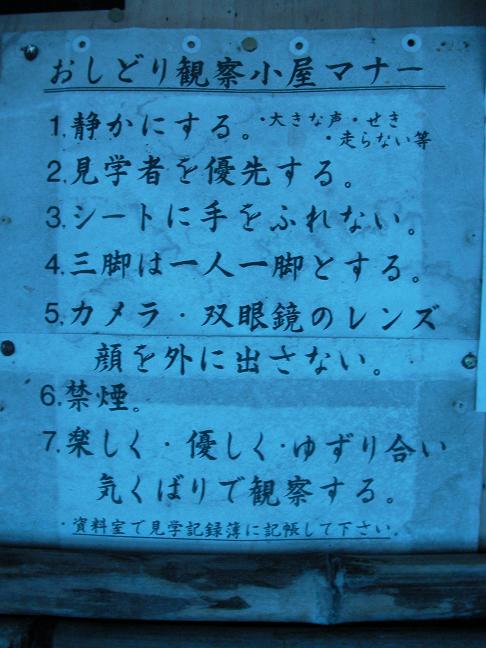 おしどり観察小屋マナー
1.静かにする。・大きな声・せき
・走らない等
2.見学者を優先する。
3.シートに手をふれない。
4.三脚は一人一脚とする。
5.カメラ・双眼鏡のレンズ
顔を外に出さない。
6.禁煙。
7.楽しく・優しく・ゆずり合い
気くばりで観察する。
・資料室で見学記録簿に記帳して下さい。